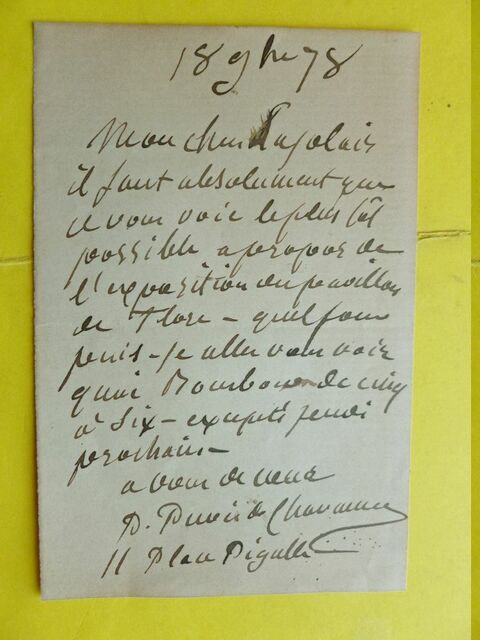 18 9bre 78
Mon cher Lajolais
il faut absolument que
je vous voie le plus tôt
possible a propos de
l'exposition du pavillon
de Flore - quel jour
puis-je aller vous voir
quai Bourbon de cinq
à Six - excepté jeudi
prochain -
a vous de cœur
P. Puvis de Chavannes
11 Place Pigalle